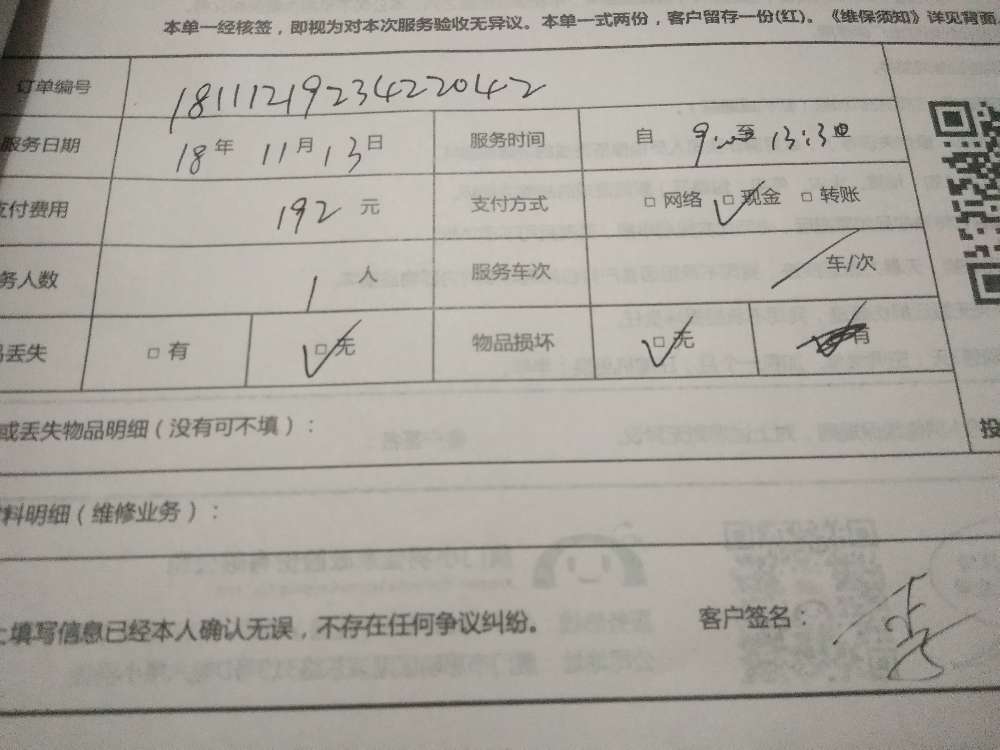 本单一经核签，即视为对本次服务验收无异议。本单一式两份，客户留存一份(红)。《维保须知》详见背面
订单编号 1811121923422042
服务日期 18年 11月13日 服务时间 自 9:00至13:30
支付费用 192元 支付方式 □网络 □✓现金 □转账
务人数 1人 服务车次 / 车/次
丢失 □有 □✓无 物品损坏 □✓无 有
或丢失物品明细（没有可不填）：
投
料明细（维修业务）：
上填写信息已经本人确认无误，不存在任何争议纠纷。 客户签名：